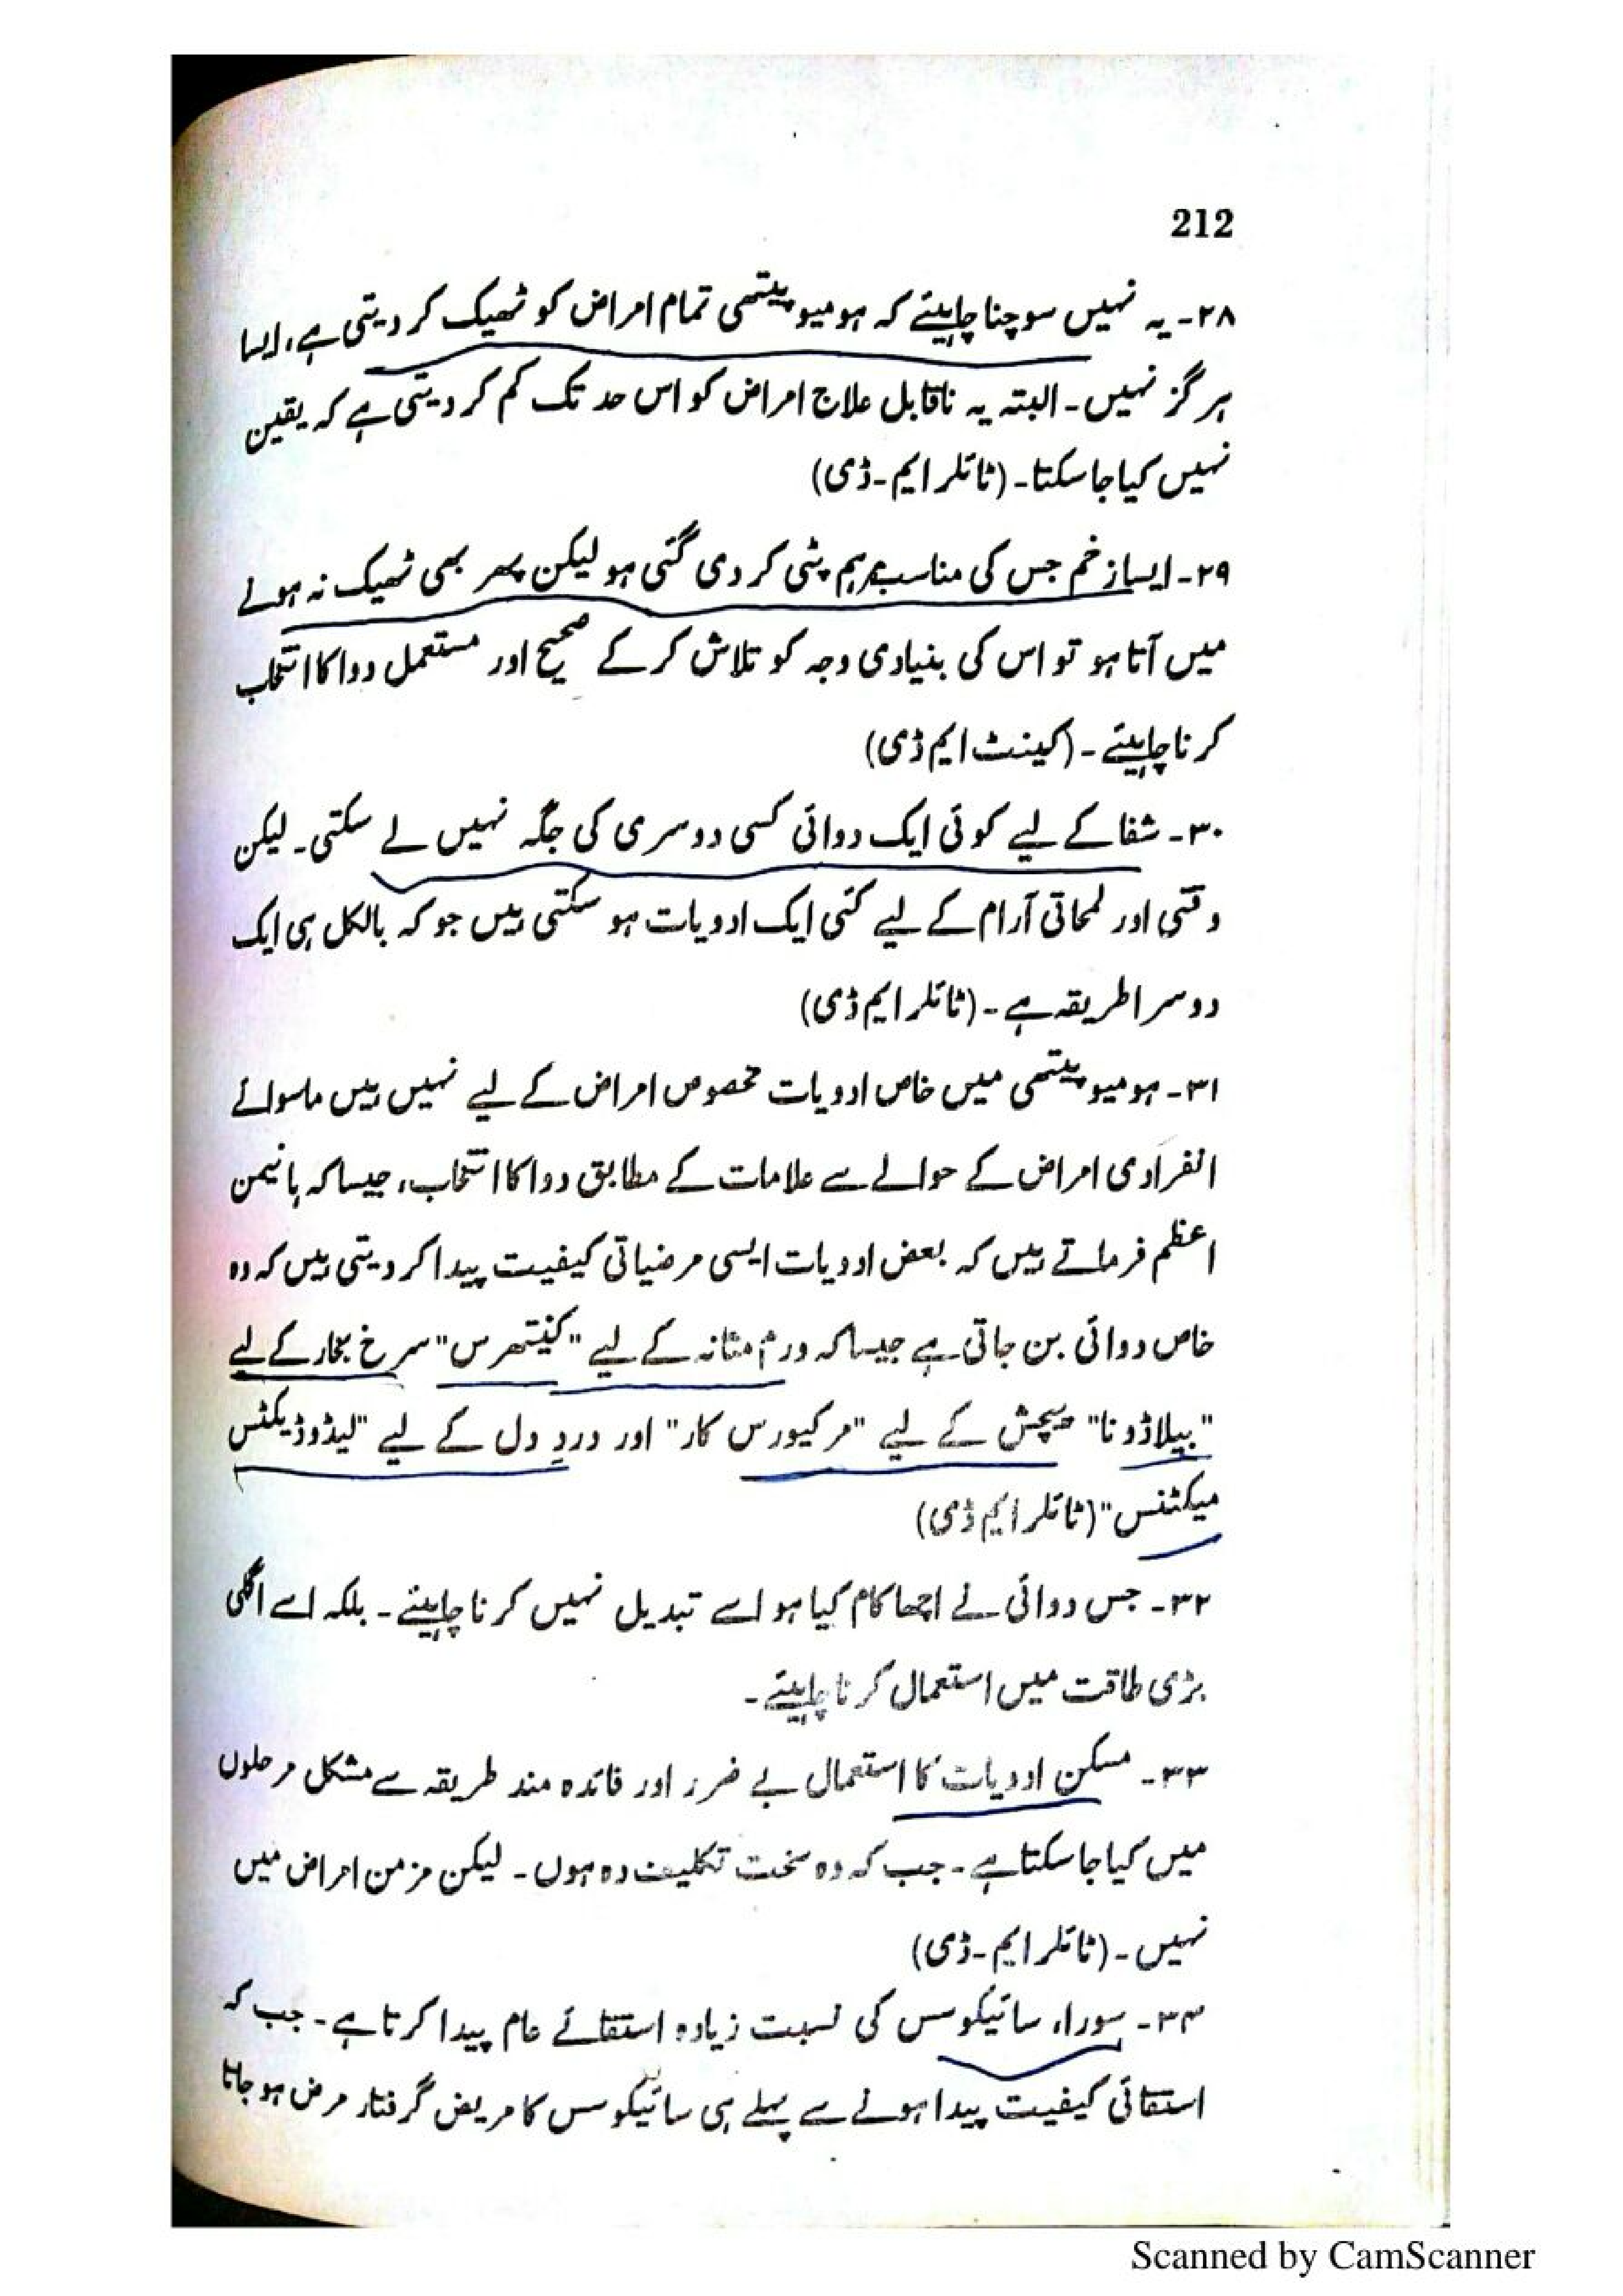 212
۲۸۔ یہ نہیں سوچنا چاہیئے کہ ہومیوپیتھی تمام امراض کو ٹھیک کر دیتی ہے، ایسا
ہر گز نہیں۔ البتہ یہ ناقابل علاج امراض کو اس حد تک کم کر دیتی ہے کہ یقین
نہیں کیا جا سکتا۔ (ٹائلر ایم۔ڈی)
۲۹۔ ایسا زخم جس کی مناسب مرہم پٹی کر دی گئی ہو لیکن پھر بھی ٹھیک نہ ہونے
میں آتا ہو تو اس کی بنیادی وجہ کو تلاش کر کے صحیح اور مستعمل دوا کا انتخاب
کرنا چاہیئے۔ (کینٹ ایم ڈی)
۳۰۔ شفا کے لیے کوئی ایک دوائی کسی دوسری کی جگہ نہیں لے سکتی۔ لیکن
وقتی اور لمحاتی آرام کے لیے کئی ایک ادویات ہو سکتی ہیں جو کہ بالکل ہی ایک
دوسرا طریقہ ہے۔ (ٹائلر ایم ڈی)
۳۱۔ ہومیوپیتھی میں خاص ادویات مخصوص امراض کے لیے نہیں ہیں ماسوائے
انفرادی امراض کے حوالے سے علامات کے مطابق دوا کا انتخاب، جیسا کہ ہانیمن
اعظم فرماتے ہیں کہ بعض ادویات ایسی مرضیاتی کیفیت پیدا کر دیتی ہیں کہ وہ
خاص دوائی بن جاتی ہے جیسا کہ ورم مثانہ کے لیے "کینتھرس" سرخ بخار کے لیے
"بیلاڈونا" پیچش کے لیے "مرکیورس کار" اور دردِ دل کے لیے "لیڈوڈیکٹس
میکٹنس" (ٹائلر ایم ڈی)
۳۲۔ جس دوائی نے اچھا کام کیا ہو اسے تبدیل نہیں کرنا چاہیئے۔ بلکہ اسے اگلی
بڑی طاقت میں استعمال کرنا چاہیئے۔
۳۳۔ مسکن ادویات کا استعمال بے ضرر اور فائدہ مند طریقہ سے مشکل مرحلوں
میں کیا جا سکتا ہے۔ جب کہ وہ سخت تکلیف دہ ہوں۔ لیکن مزمن امراض میں
نہیں۔ (ٹائلر ایم۔ڈی)
۳۴۔ سورا، سائیکوسس کی نسبت زیادہ استقائے عام پیدا کرتا ہے۔ جب کہ
استقائی کیفیت پیدا ہونے سے پہلے ہی سائیکوسس کا مریض گرفتار مرض ہو جاتا
Scanned by CamScanner